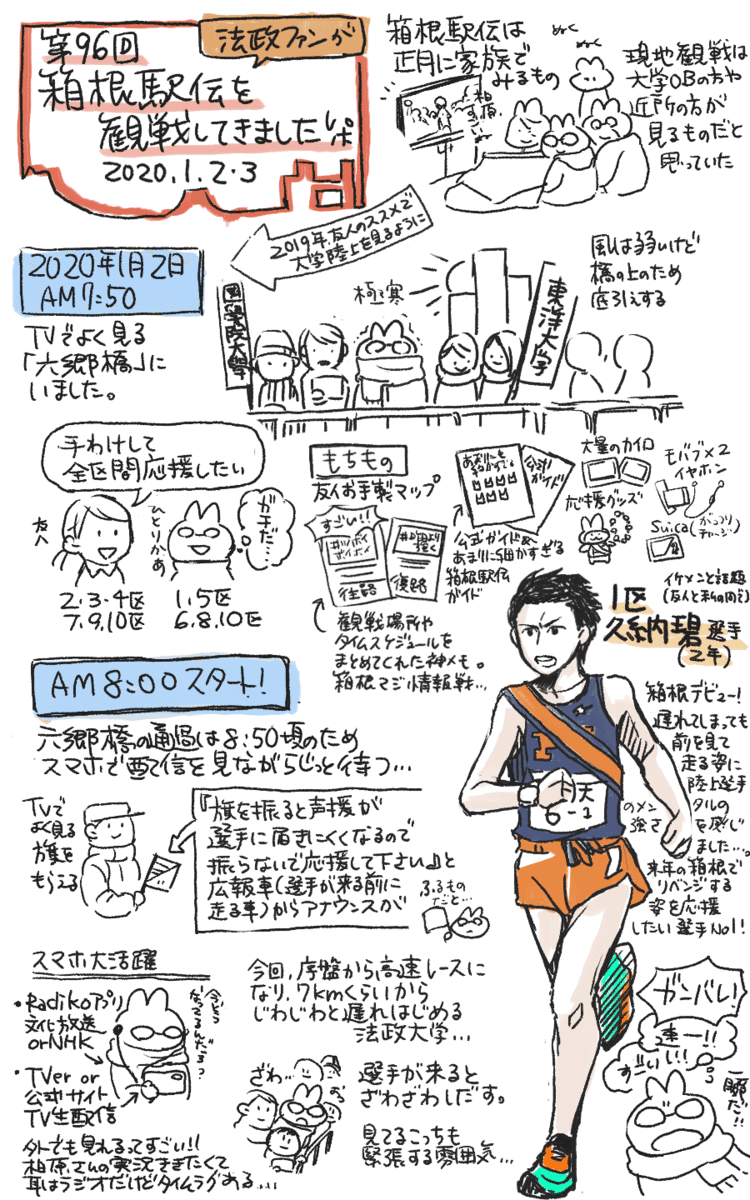 第96回
法政ファンが
箱根駅伝を
観戦してきましたレポ
2020.1.2・3
箱根駅伝は
正月に家族で
みるもの
ぬく
ぬく
現地観戦は
大学OBの方や
近所の方が
見るものだと
思っていた
2019年、友人のススメで
大学陸上を見るように
2020年1月2日
AM7:50
TVでよく見る
「六郷橋」に
いました。
極寒
國學院大學
東洋大学
風は弱いけど
橋の上のため
底冷えする
手わけして
全区間応援したい
ガチだ…
友人
ひとりかあ
2・3・4区
7.9.10区
1.5区
6.8.10区
もちもの
友人お手製マップ
すごい!!
往路
復路
観戦場所や
タイムスケジュールを
まとめてくれた神メモ。
箱根マジ情報戦…
公式
ガイド
公式ガイド&
あまりに細かすぎる
箱根駅伝
ガイド
大量のカイロ
応援グッズ
モバブ×2
イヤホン
Suica(がっつり
チャージ)
イケメンと話題
(友人と私の間で)
1区
久納碧選手
(2年)
箱根デビュー!
遅れてしまっても
前を見て
走る姿に
陸上選手
のメンタルの
強さを感じ
ました…。
来年の箱根で
リベンジする
姿を応援
したい選手No1!
AM8:00スタート!
六郷橋の通過は8:50頃のため
スマホで配信を見ながらじっと待つ…
TVで
よく見る
旗を
もらえる
『旗を振ると声援が
選手に届きにくくなるので
振らないで応援して下さい』と
広報車(選手が来る前に
走る車)からアナウンスが
ふるもの
だと…
6-1
スマホ大活躍
・Radikoアプリ
文化放送
orNHK
・TVer or
公式サイト
TV生配信
今どう
なってるんだろう
外でも見れるってすごい!!
柏原さんの実況ききたくて
耳はラジオだけどタイムラグある…
今回、序盤から高速レースに
なり、7kmくらいから
じわじわと遅れはじめる
法政大学…
ざわ…
選手が来ると
ざわざわしだす。
見てるこっちも
緊張する雰囲気…
ガンバレ!
速ー!!
すごいい!!
一瞬だ!!